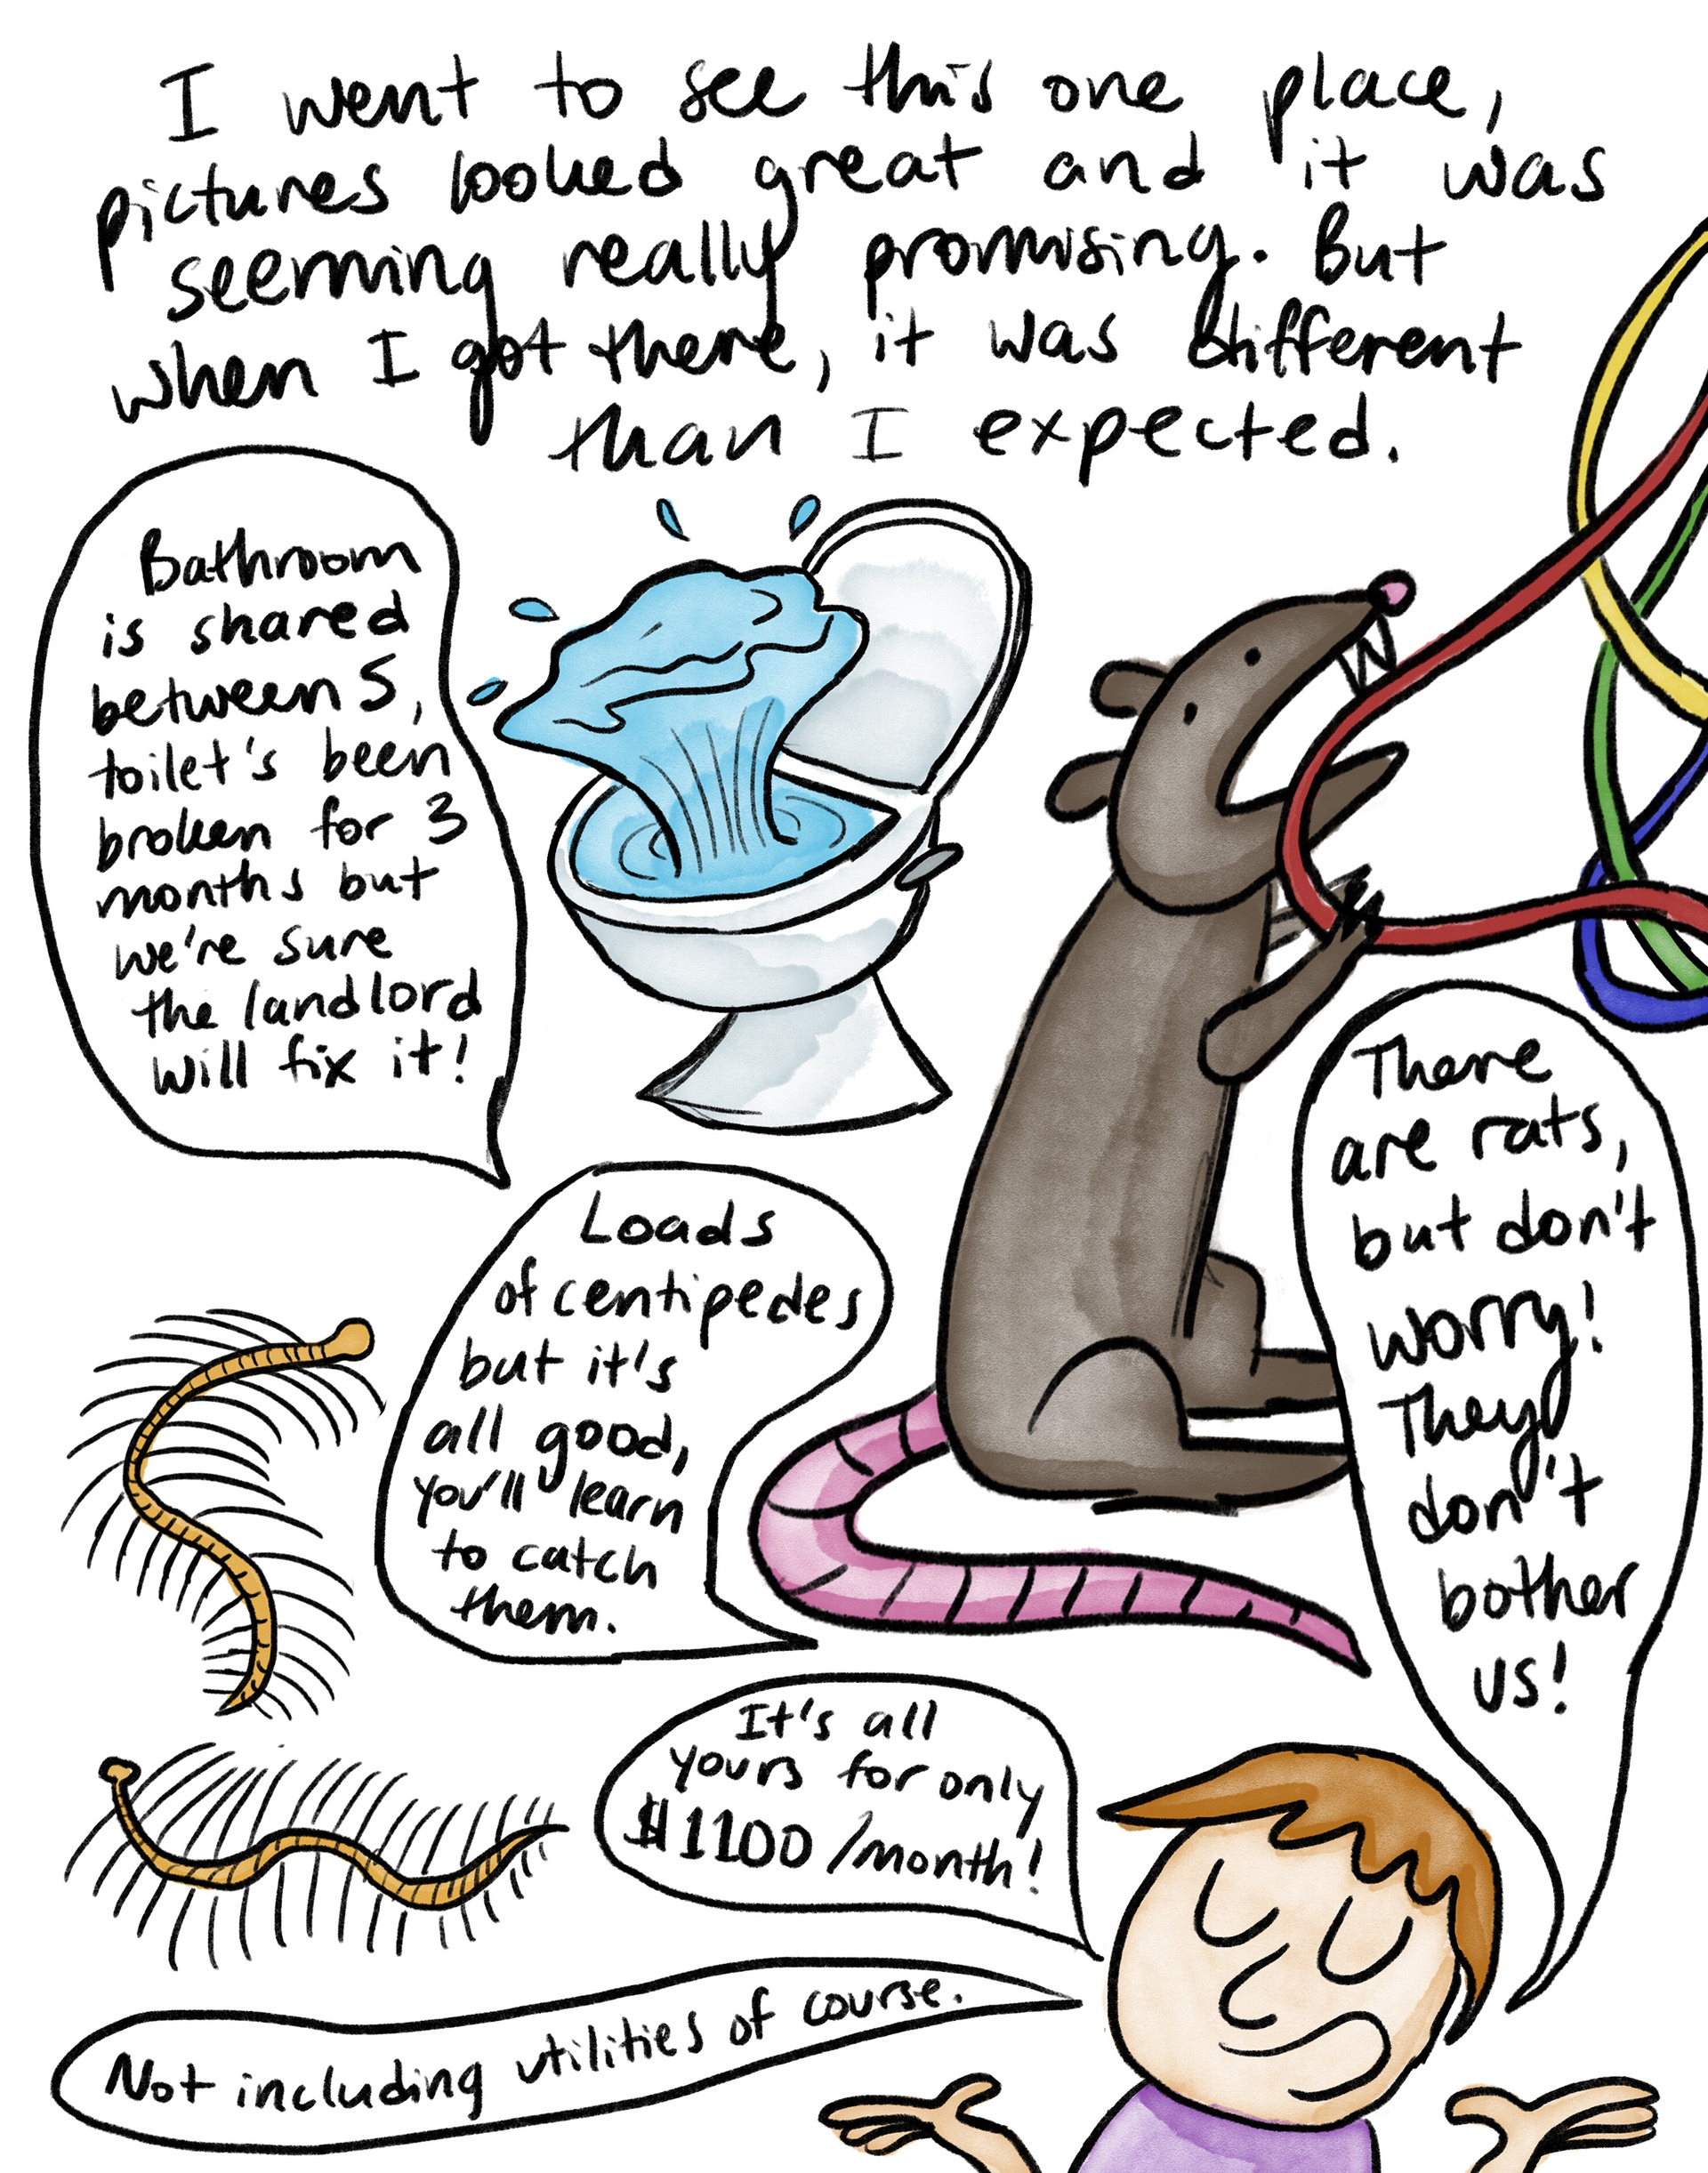 I went to see this one place,
pictures looked great and it was
seeming really promising. But
when I got there, it was different
than I expected.
Bathroom
is shared
between 5,
toilet's been
broken for 3
months but
we're sure
the landlord
will fix it!
There
are rats,
but don't
worry!
They
don't
bother
us!
Loads
of centipedes
but it's
all good,
you'll learn
to catch
them.
It's all
yours for only
$1100/month!
Not including utilities of course.